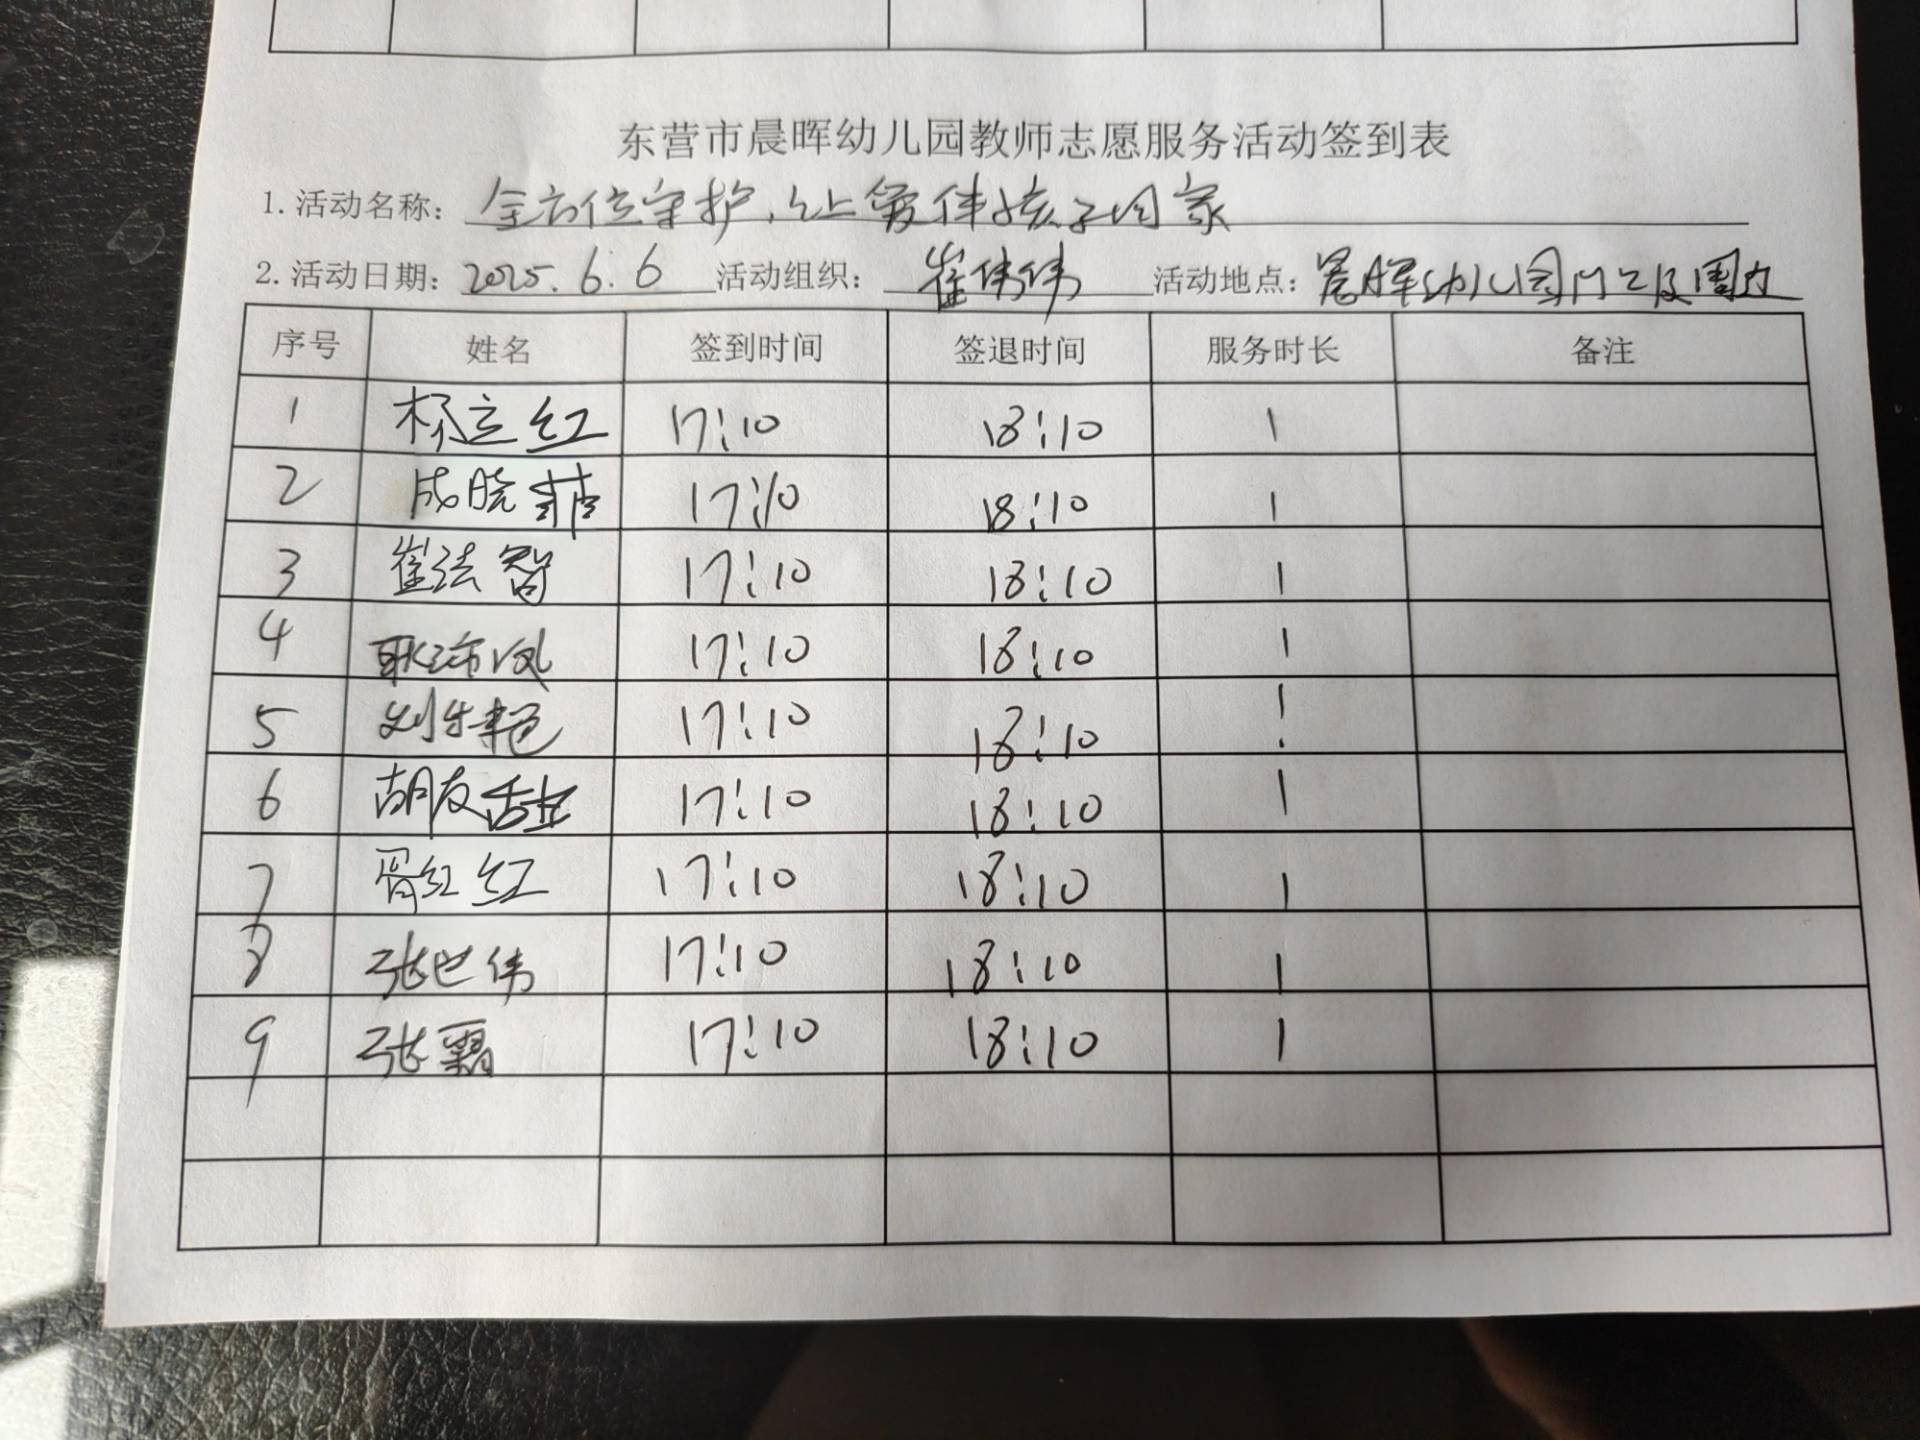 东营市晨晖幼儿园教师志愿服务活动签到表
1.活动名称：全方位守护，让爱伴孩子回家
2.活动日期：2025.6.6 活动组织：崔伟伟 活动地点：晨晖幼儿园门口及周边
序号 姓名 签到时间 签退时间 服务时长 备注
1 杨立红 17:10 18:10 1
2 成晓菲 17:10 18:10 1
3 崔法智 17:10 18:10 1
4 17:10 18:10 1
5 17:10 18:10 1
6 胡友 17:10 18:10 1
7 胥红红 17:10 18:10 1
8 张世伟 17:10 18:10 1
9 张霜 17:10 18:10 1